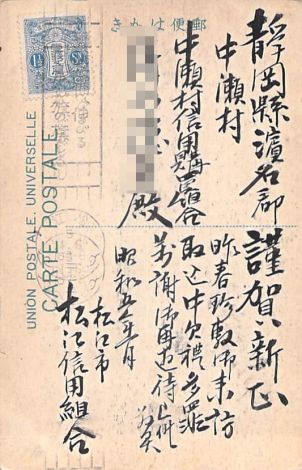 郵便はがき
1½ Sn
UNION POSTALE UNIVERSELLE
CARTE POSTALE
静岡縣濱名郡
中瀬村
中瀬村信用購買組合
殿
謹賀新正
昨春珍敷御来訪
取込中欠禮多罪
万謝御再遊待上候
昭和五年一月
松江市
松江信用組合